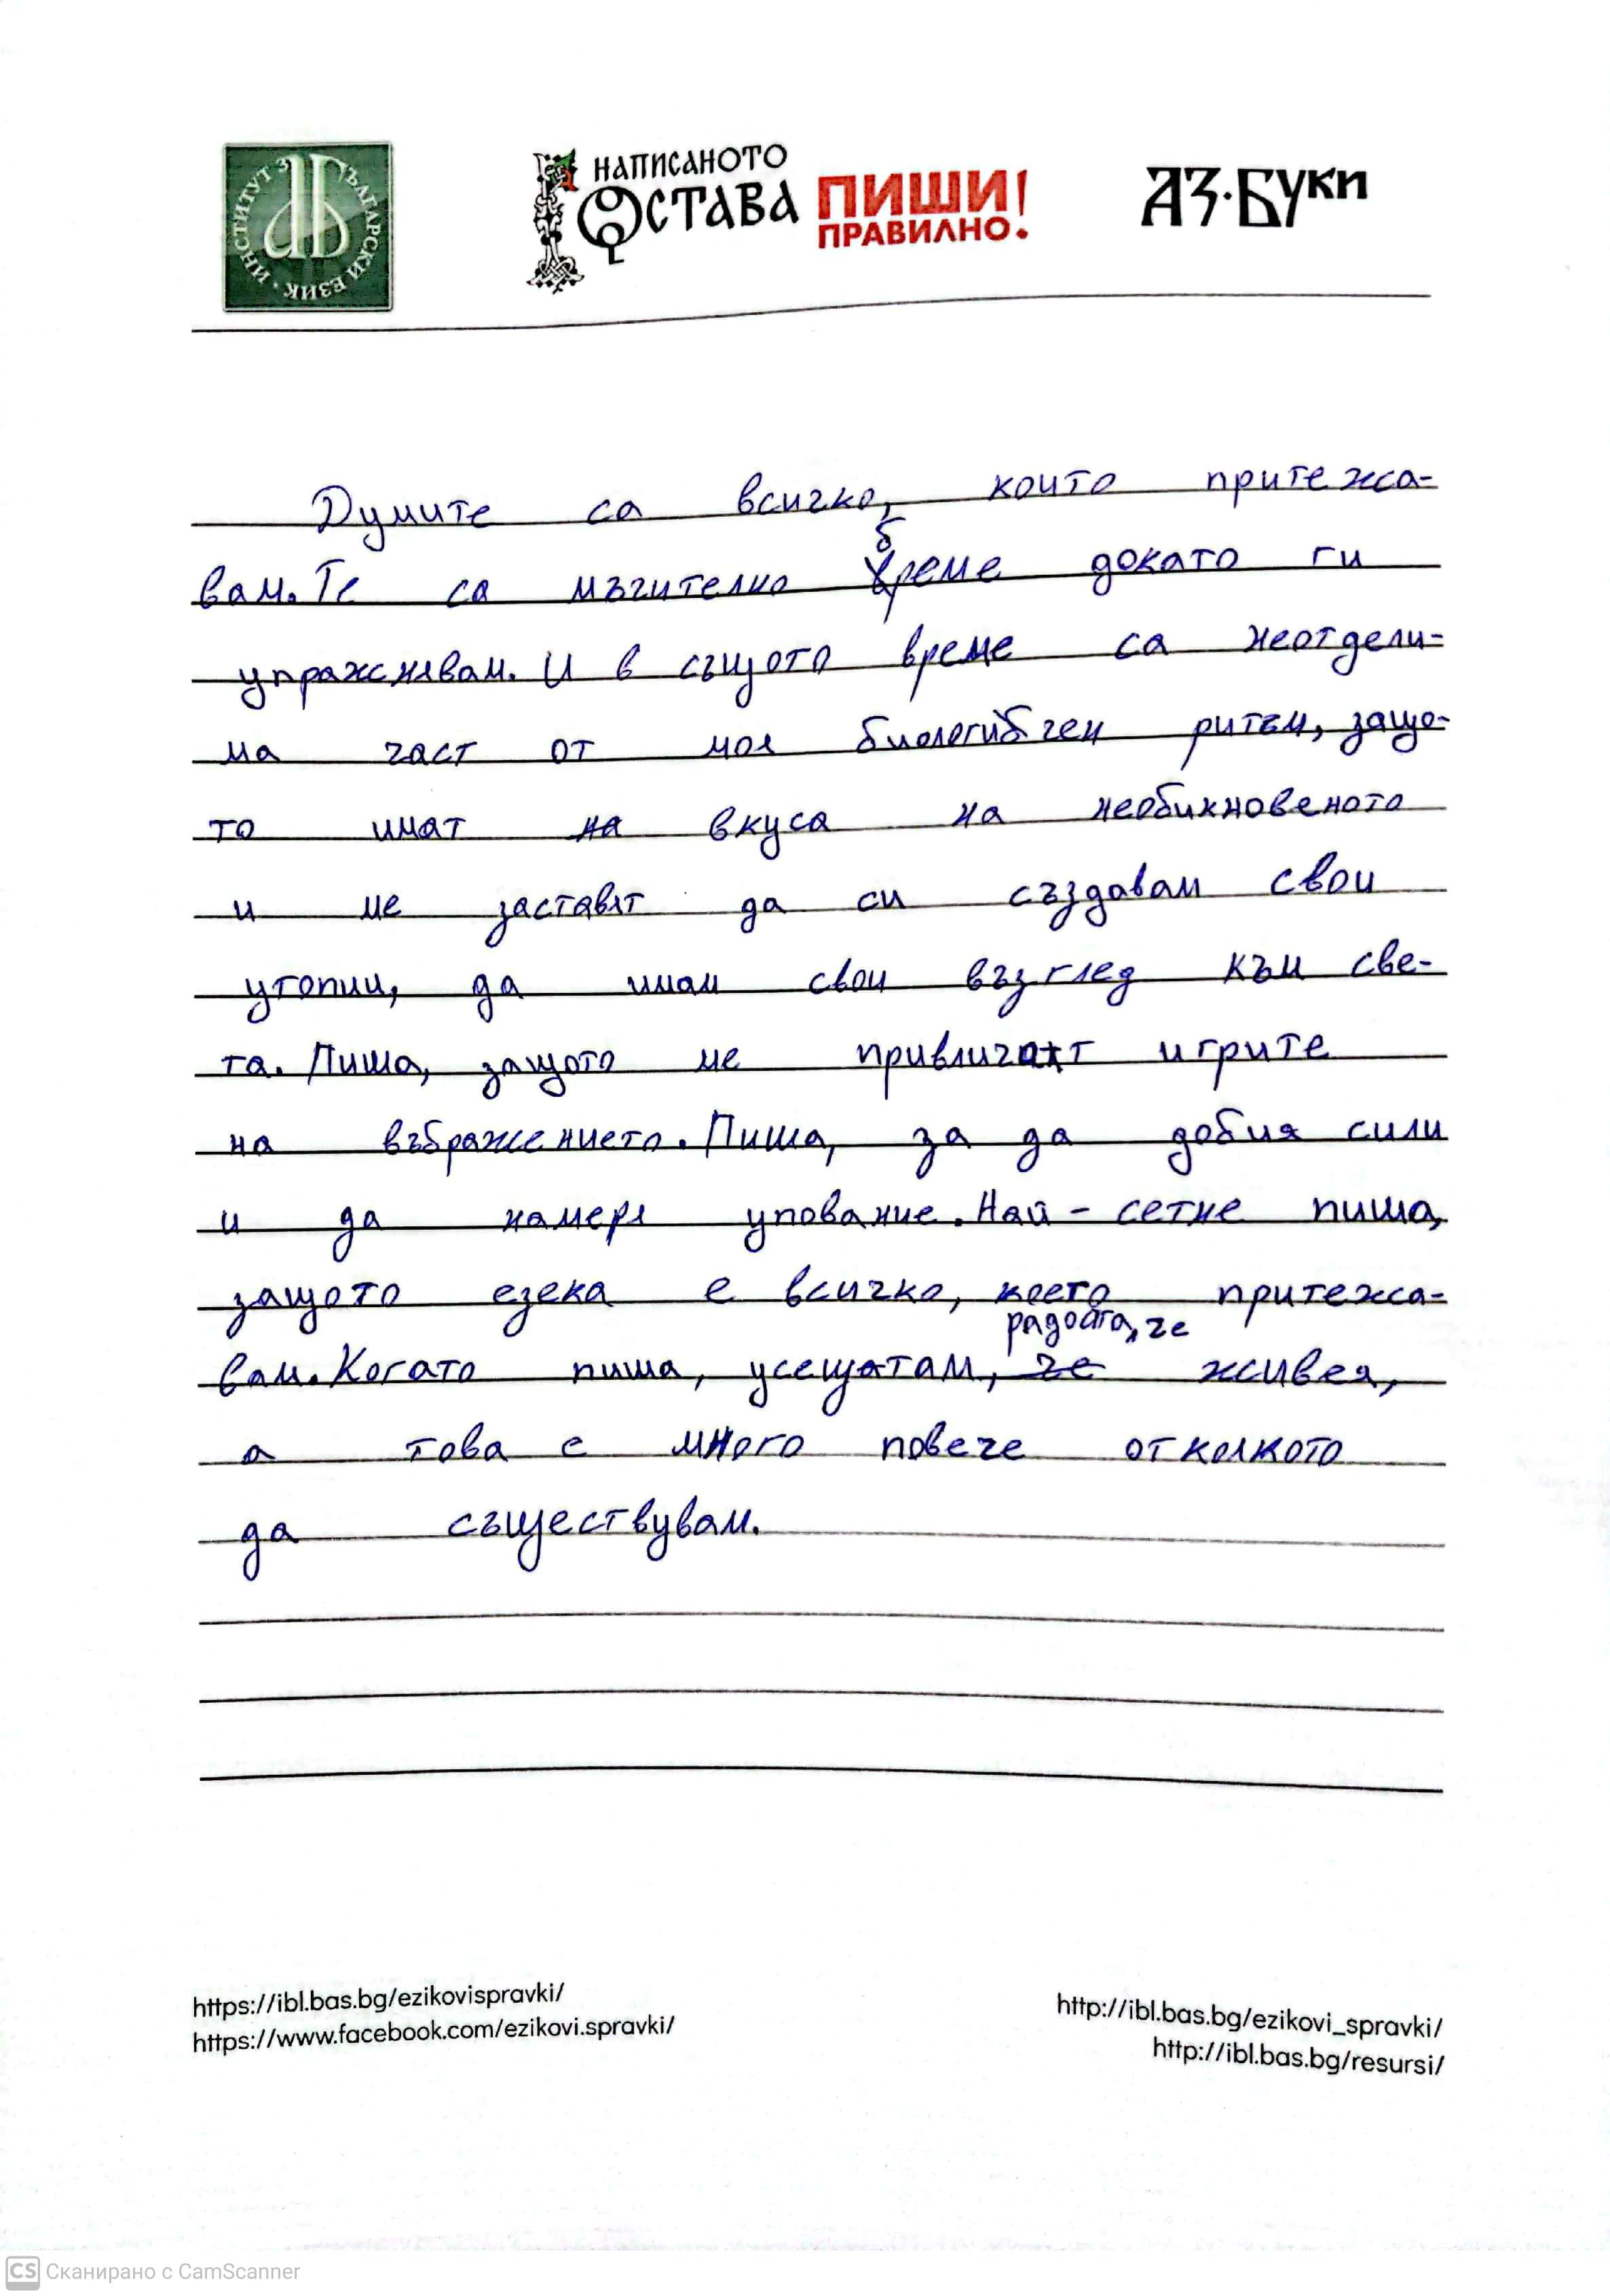 ИНСТИТУТ ЗА БЪЛГАРСКИ ЕЗИК
НАПИСАНОТО
ОСТАВА
ПИШИ!
ПРАВИЛНО.
АЗ·БУКИ
Думите са всичко, които притежа-
вам. Те са мъчително бреме докато ги
упражнявам. И в същото време са неотдели-
ма част от моя биологичен ритъм, защо-
то имат на вкуса на необикновеното
и ме заставят да си създавам свои
утопии, да имам свои възглед към све-
та. Пиша, защото ме привличат игрите
на въбражението. Пиша, за да добия сили
и да намеря упование. Най - сетне пиша,
защото езека е всичко, което притежа-
вам. Когато пиша, усещатам, че радоста, че живея,
а това е много повече отколкото
да съществувам.
https://ibl.bas.bg/ezikovispravki/
https://www.facebook.com/ezikovi.spravki/
http://ibl.bas.bg/ezikovi_spravki/
http://ibl.bas.bg/resursi/
CS Сканирано с CamScanner